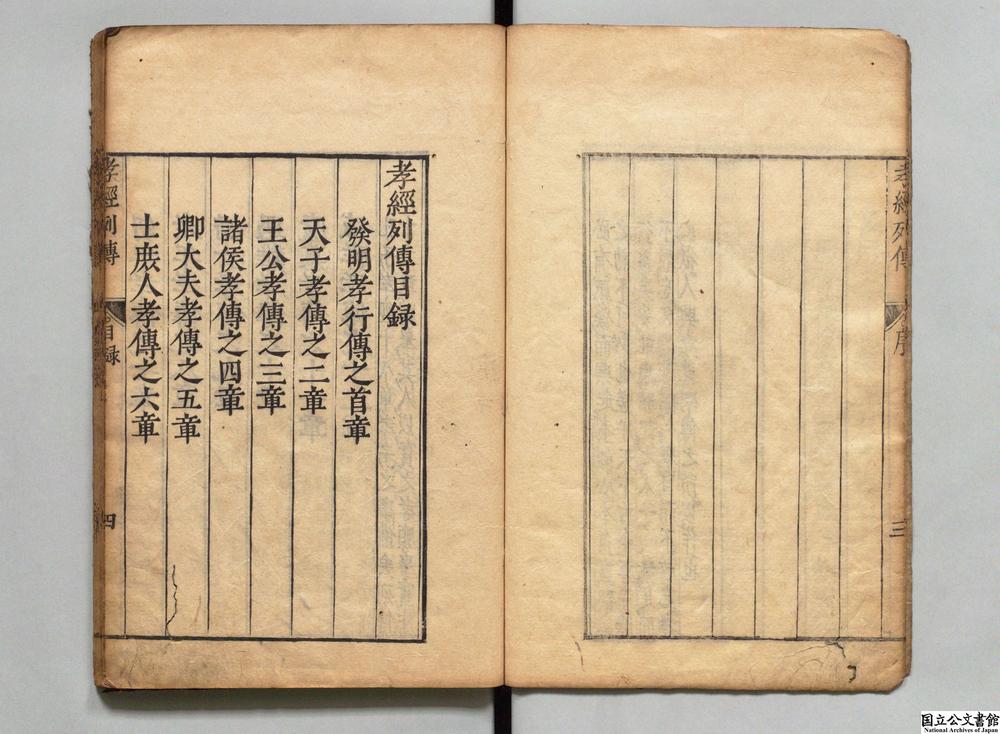 孝經列傳
序
三
孝經列傳目録
發明孝行傳之首章
天子孝傳之二章
王公孝傳之三章
諸侯孝傳之四章
卿大夫孝傳之五章
士庻人孝傳之六章
孝經列傳
目録
四
国立公文書館
National Archives of Japan